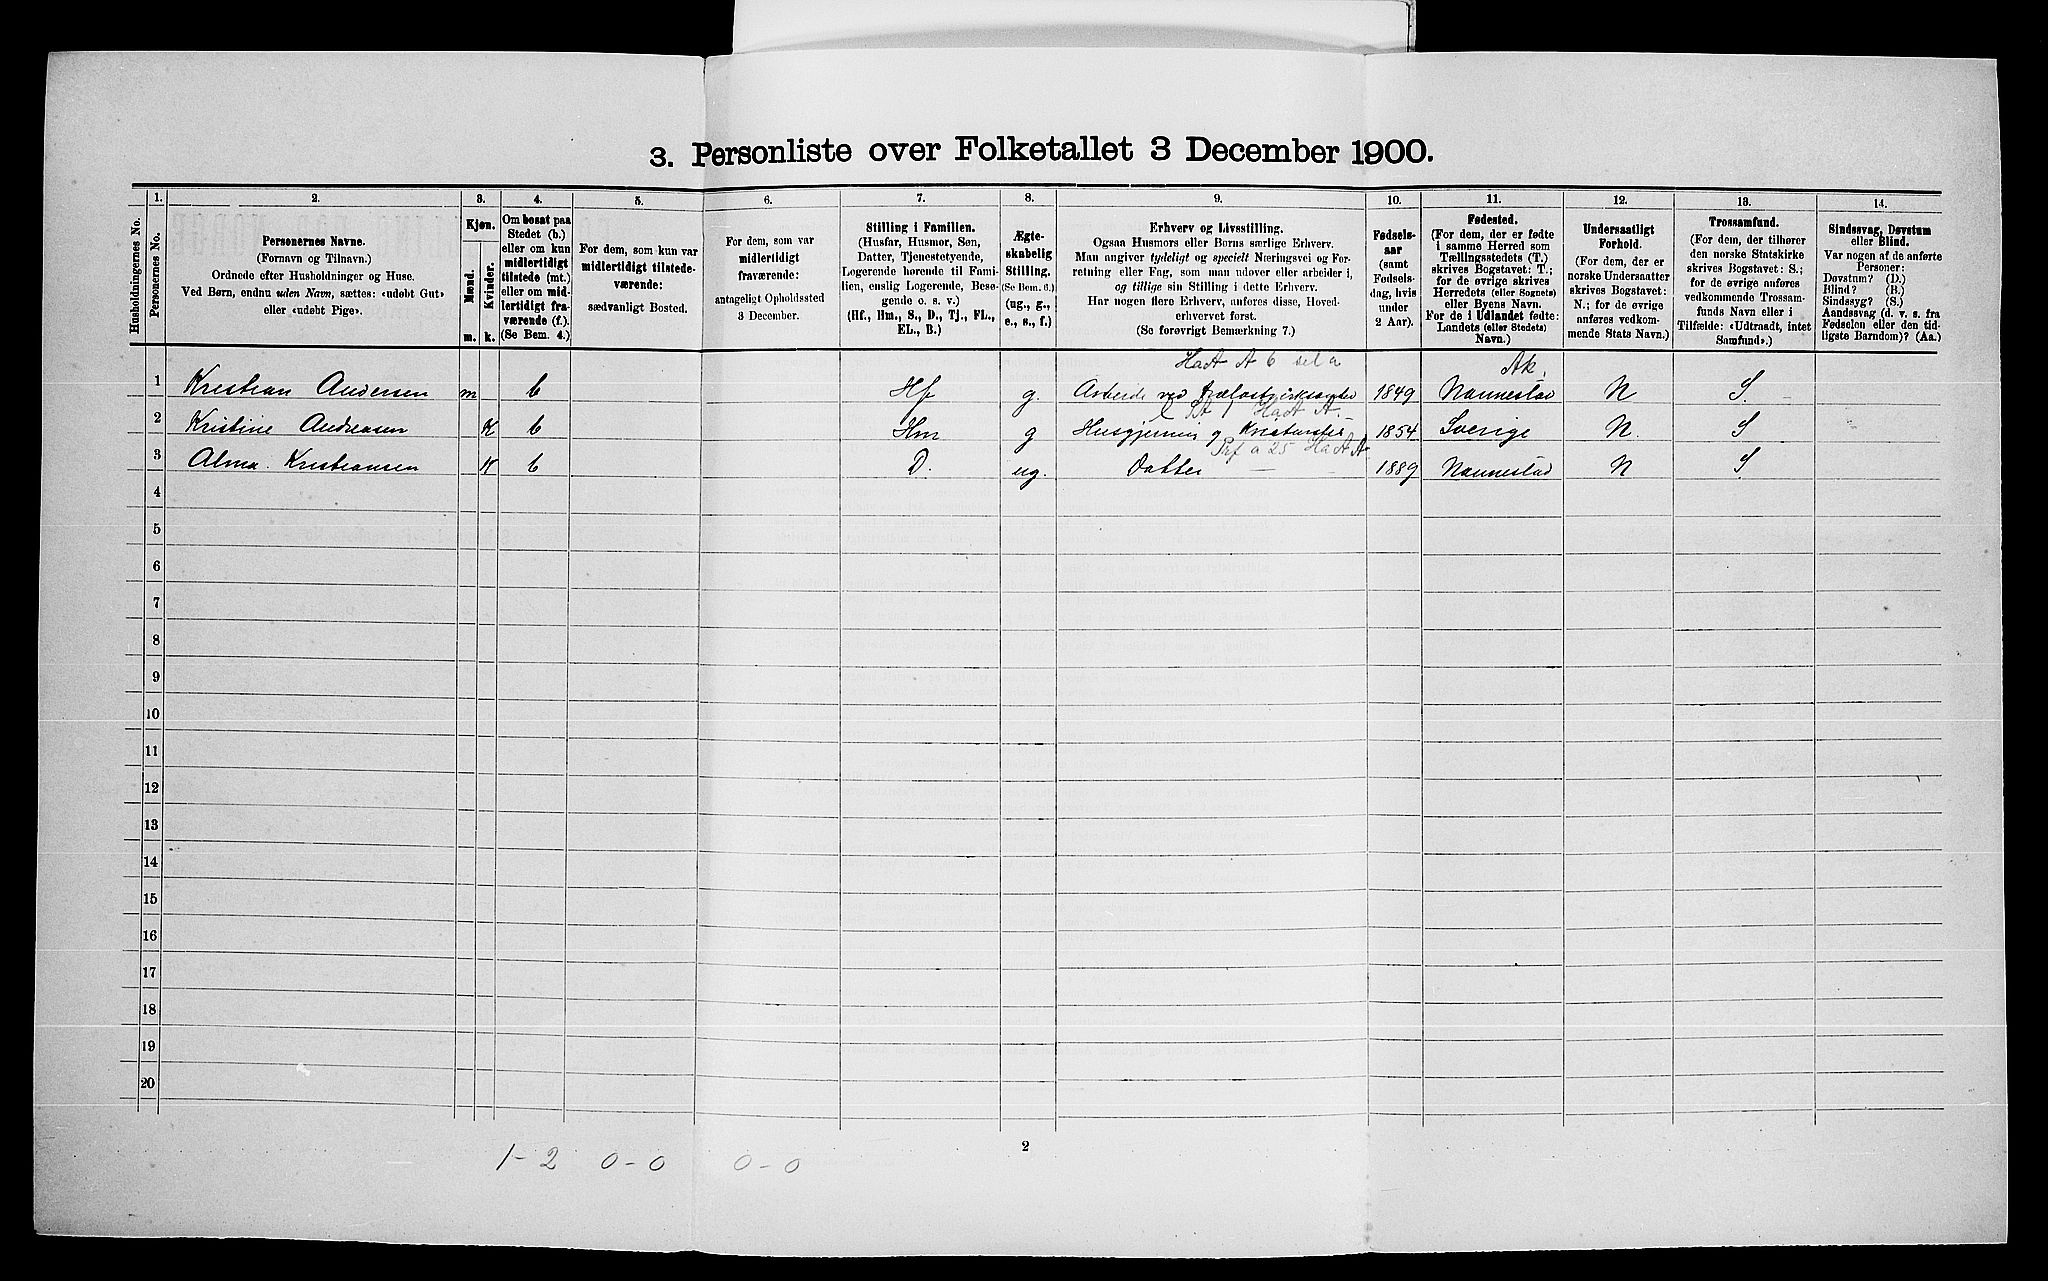 3. Personliste over Folketallet 3 December 1900.
1. 2. 3. 4. 5. 6. 7. 8. 9. 10. 11. 12. 13. 14.
Husholdningernes No.
Personernes No.
Personernes Navne.
(Fornavn og Tilnavn.)
Ordnede efter Husholdninger og Huse.
Ved Børn, endnu uden Navn, sættes: «udøbt Gut»
eller «udøbt Pige».
Kjøn.
Mænd.
Kvinder.
m. k.
Om bosat paa
Stedet (b.)
eller om kun
midlertidigt
tilstede (mt.)
eller om mid-
lertidigt fra-
værende (f.).
(Se Bem. 4.)
For dem, som kun var
midlertidigt tilstede-
værende:
sædvanligt Bosted.
For dem, som var
midlertidigt
fraværende:
antageligt Opholdssted
3 December.
Stilling i Familien.
(Husfar, Husmor, Søn,
Datter, Tjenestetyende,
Logerende hørende til Fami-
lien, enslig Logerende, Besø-
gende o. s. v.)
(Hf., Hm., S., D., Tj., FL.,
EL., B.)
Ægte-
skabelig
Stilling.
(Se Bem. 6.)
(ug., g.,
e., s., f.)
Erhverv og Livsstilling.
Ogsaa Husmors eller Børns særlige Erhverv.
Man angiver tydeligt og specielt Næringsvei og For-
retning eller Fag, som man udover eller arbeider i,
og tillige sin Stilling i dette Erhverv.
Har nogen flere Erhverv, anføres disse, Hoved-
erhvervet først.
(Se forøvrigt Bemærkning 7.)
Fødsels-
aar
(samt
Fødsels-
dag, hvis
under
2 Aar).
Fødested.
(For dem, der er fødte
i samme Herred som
Tællingsstedets (T.)
skrives Bogstavet: T.;
for de øvrige skrives
Herredets (eller Sognets)
eller Byens Navn.
For de i Udlandet fødte:
Landets (eller Stedets)
Navn.)
Undersaatligt
Forhold.
(For dem, der er
norske Undersaatter
skrives Bogstavet:
N.; for de øvrige
anføres vedkom-
mende Stats Navn.)
Trossamfund.
(For dem, der tilhører
den norske Statskirke
skrives Bogstavet: S.;
for de øvrige anføres
vedkommende Trossam-
funds Navn eller i
Tilfælde: «Udtraadt, intet
Samfund».)
Sindssvag, Døvstum
eller Blind.
Var nogen af de anførte
Personer:
Døvstum? (D.)
Blind? (B.)
Sindssyg? (S.)
Aandssvag (d. v. s. fra
Fødselen eller den tid-
ligste Barndom)? (Aa.)
Ak.
1 Kristian Andersen m b Hf g. Arbeide ved 1849 Nannestad N S
2 Kristine Andreasen K b Hm g Husgjerning og 1854 Sverige N. S
3 Alma Kristiansen K b D. ug. Datter — — 1889 Nannestad N S
4
5
6
7
8
9
10
11
12
13
14
15
16
17
18
19
20
2
1-2 0-0 0-0